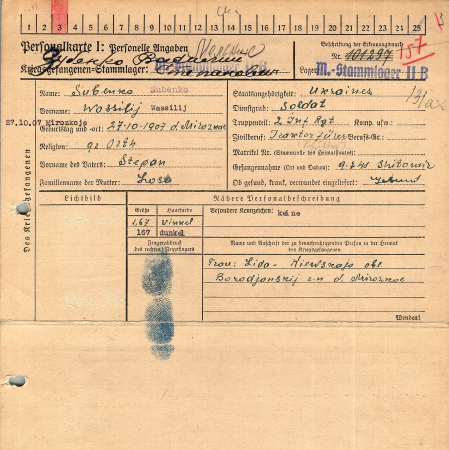 1 2 3 4 5 6 7 8 9 10 11 12 13 14 15 16 17 18 19 20 21 22 23 24 25
Personalkarte I: Personelle Angaben
Beschriftung der Erkennungsmarke
Kriegsgefangenen-Stammlager:
Nr. 101297
157
Lager: M.-Stammlager II B
Des Kriegsgefangenen
Name: Subenko Subenko
Staatsangehörigkeit: Ukrainer
Vorname: Wassilij Wassilij
Dienstgrad: Soldat
27.10.07 Mirozkoje
Truppenteil: 2 Inf Rgt Komp. usw.:
Geburtstag und -ort: 27.10.1907 d. Mirozkoe
Zivilberuf: Berufs-Gr.:
Religion: gr. Orth
Matrikel Nr. (Stammrolle des Heimatstaates):
Vorname des Vaters: Stepan
Gefangennahme (Ort und Datum): 9.7.41 Shitomir
Familienname der Mutter:
Ob gesund, krank, verwundet eingeliefert:
Lichtbild
Nähere Personalbeschreibung
Größe Haarfarbe
Besondere Kennzeichen: keine
1,67
167 dunkel
Fingerabdruck
des rechten Zeigefingers
Name und Anschrift der zu benachrichtigenden Person in der Heimat
des Kriegsgefangenen
Frau: Lida
d. Mirozkoe
Wenden!